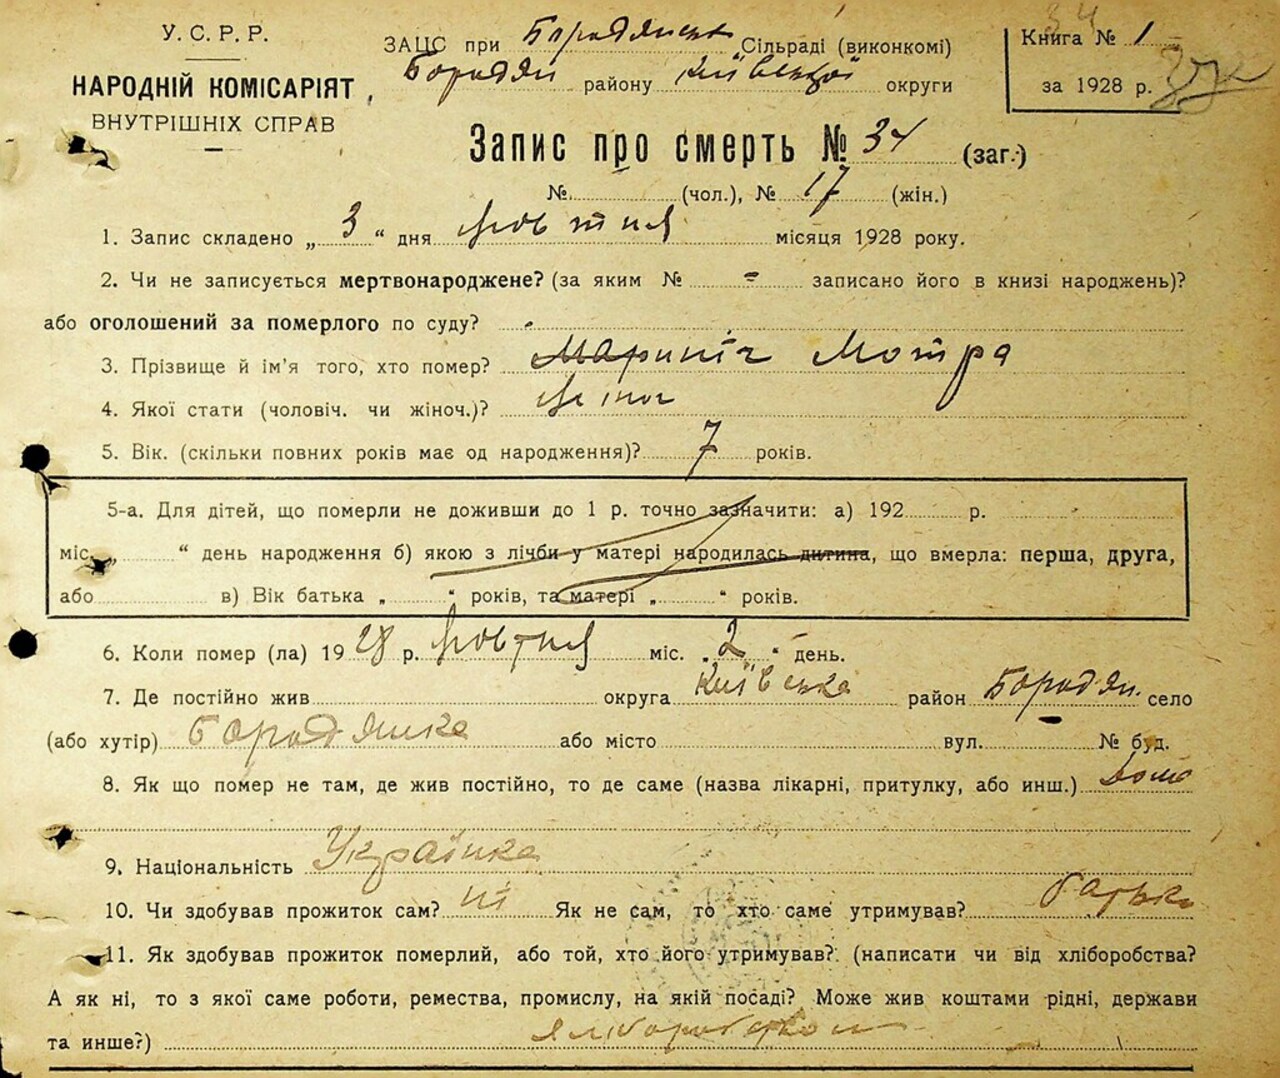 У. С. Р. Р.
НАРОДНІЙ КОМІСАРІЯТ
ВНУТРІШНІХ СПРАВ
ЗАЦС при Бородянськ Сільраді (виконкомі)
Бородян району Київської округи
Книга № 1
за 1928 р.
Запис про смерть № 34 (заг.)
№ (чол.), № 17 (жін.)
1. Запис складено „ 3 “ дня жовтня місяця 1928 року.
2. Чи не записується мертвонароджене? (за яким № = записано його в книзі народжень)?
або оголошений за померлого по суду?
3. Прізвище й ім'я того, хто помер? Мариніч Мотря
4. Якої стати (чоловіч. чи жіноч.)? жіноч
5. Вік. (скільки повних років має од народження)? 7 років.
5-а. Для дітей, що померли не доживши до 1 р. точно зазначити: а) 192 р.
міс. „ “ день народження б) якою з лічби у матері народилась дитина, що вмерла: перша, друга,
або в) Вік батька „ “ років, та матері „ “ років.
6. Коли помер (ла) 1928 р. жовтня міс. „ 2 “ день.
7. Де постійно жив округа Київська район Бородян. село
(або хутір) Бородянка або місто вул. № буд.
8. Як що помер не там, де жив постійно, то де саме (назва лікарні, притулку, або инш.) дома
9. Національність Українка
10. Чи здобував прожиток сам? ні Як не сам, то хто саме утримував? батько
11. Як здобував прожиток померлий, або той, хто його утримував? (написати чи від хліборобства?
А як ні, то з якої саме роботи, ремества, промислу, на якій посаді? Може жив коштами рідні, держави
та инше?)